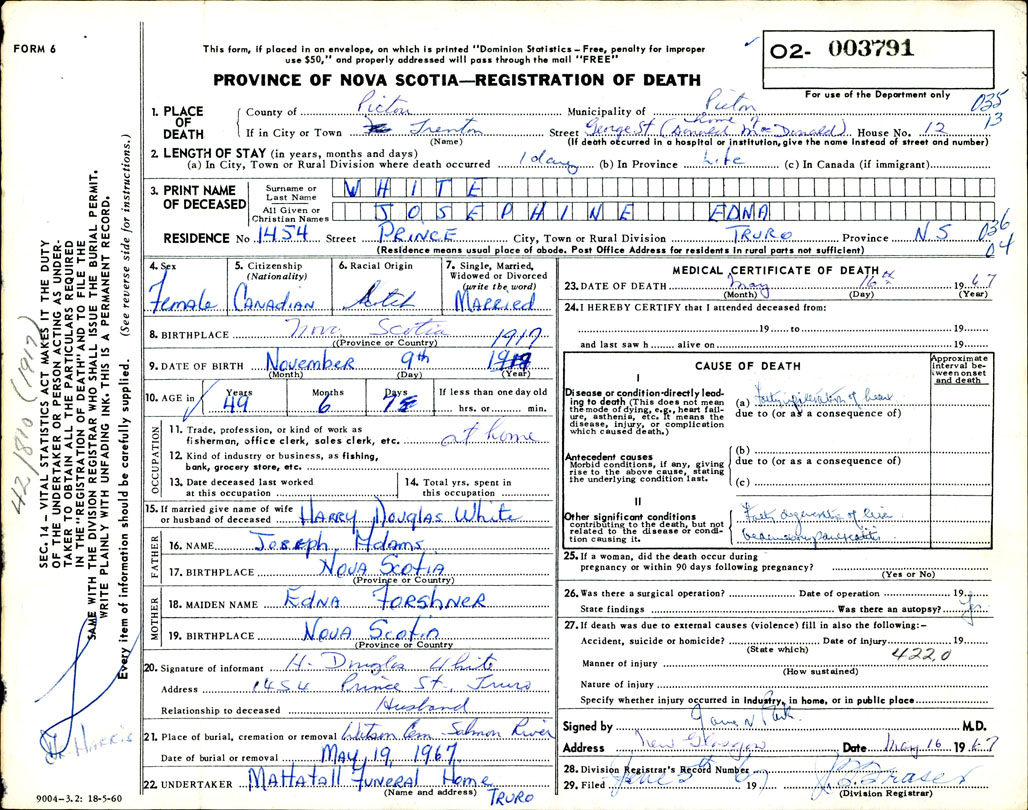 FORM 6
This form, if placed in an envelope, on which is printed "Dominion Statistics – Free, penalty for improper
use $50," and properly addressed will pass through the mail "FREE"
PROVINCE OF NOVA SCOTIA—REGISTRATION OF DEATH
O2- 003791
For use of the Department only
035
13
1. PLACE OF DEATH
County of Pictou Municipality of Pictou
If in City or Town Trenton Street George St (home of Donald MacDonald) House No. 12
(Name) (If death occurred in a hospital or institution, give the name instead of street and number)
2. LENGTH OF STAY (in years, months and days)
(a) In City, Town or Rural Division where death occurred 1 day (b) In Province Life (c) In Canada (if immigrant)
3. PRINT NAME OF DECEASED
Surname or Last Name WHITE
All Given or Christian Names JOSEPHINE EDNA
RESIDENCE No 1454 Street PRINCE City, Town or Rural Division TRURO Province N.S
(Residence means usual place of abode. Post Office Address for residents in rural parts not sufficient)
036
04
4. Sex Female
5. Citizenship (Nationality) CANADIAN
6. Racial Origin
7. Single, Married, Widowed or Divorced (write the word) MARRIED
8. BIRTHPLACE Nova Scotia
(Province or Country)
1917
9. DATE OF BIRTH November 9th
(Month) (Day) (Year)
10. AGE in Years 49 Months 6 Days
If less than one day old
hrs. or min.
OCCUPATION
11. Trade, profession, or kind of work as
fisherman, office clerk, sales clerk, etc. at home
12. Kind of industry or business, as fishing,
bank, grocery store, etc.
13. Date deceased last worked
at this occupation
14. Total yrs. spent in
this occupation
15. If married give name of wife
or husband of deceased HARRY DOUGLAS White
FATHER
16. NAME Joseph Adams
17. BIRTHPLACE NOVA SCOTIA
(Province or Country)
MOTHER
18. MAIDEN NAME EDNA FORSHNER
19. BIRTHPLACE NOVA SCOTIA
(Province or Country)
20. Signature of informant H. Douglas White
Address 1454 Prince St., Truro
Relationship to deceased Husband
21. Place of burial, cremation or removal Watson Cem. Salmon River
Date of burial or removal MAY, 19, 1967
22. UNDERTAKER MATTATALL FUNERAL HOME
(Name and address) TRURO
9004-3.2: 18-5-60
MEDICAL CERTIFICATE OF DEATH
23. DATE OF DEATH May 16th 1967
(Month) (Day) (Year)
24. I HEREBY CERTIFY that I attended deceased from:
19 to 19
and last saw h alive on 19
CAUSE OF DEATH
Approximate interval between onset and death
I
Disease or condition directly leading to death (This does not mean the mode of dying, e.g., heart failure, asthenia, etc. It means the disease, injury, or complication which caused death.)
(a) Fatty of heart
due to (or as a consequence of)
Antecedent causes
Morbid conditions, if any, giving rise to the above cause, stating the underlying condition last.
(b)
due to (or as a consequence of)
(c)
II
Other significant conditions contributing to the death, but not related to the disease or condition causing it.
Fatty degeneration of
25. If a woman, did the death occur during
pregnancy or within 90 days following pregnancy?
(Yes or No)
26. Was there a surgical operation? Date of operation 19
State findings Was there an autopsy? Yes
27. If death was due to external causes (violence) fill in also the following:-
Accident, suicide or homicide? Date of injury 19
(State which)
422.0
Manner of injury
(How sustained)
Nature of injury
Specify whether injury occurred in industry, in home, or in public place
Signed by M.D.
Address New Glasgow Date May 16 1967
28. Division Registrar's Record Number
29. Filed June 5th 1967 Fraser
(Division Registrar)
SEC. 14 – VITAL STATISTICS ACT, MAKES IT THE DUTY
OF THE UNDERTAKER OR PERSON ACTING AS UNDER-
TAKER TO OBTAIN ALL THE PARTICULARS REQUIRED
IN THE "REGISTRATION OF DEATH" AND TO FILE THE
SAME WITH THE DIVISION REGISTRAR WHO SHALL ISSUE THE BURIAL PERMIT.
WRITE PLAINLY WITH UNFADING INK. THIS IS A PERMANENT RECORD.
Every item of information should be carefully supplied. (See reverse side for instructions.)
Harris